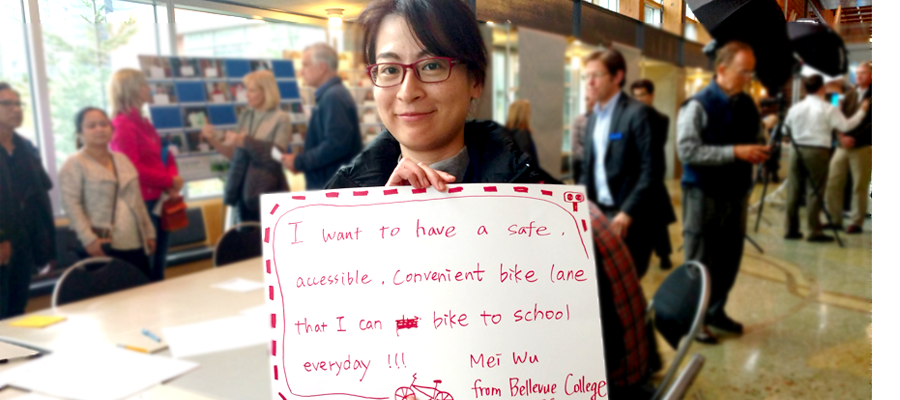 I want to have a safe,
accessible, Convenient bike lane
that I can bike to school
everyday !!!
Mei Wu
from Bellevue College